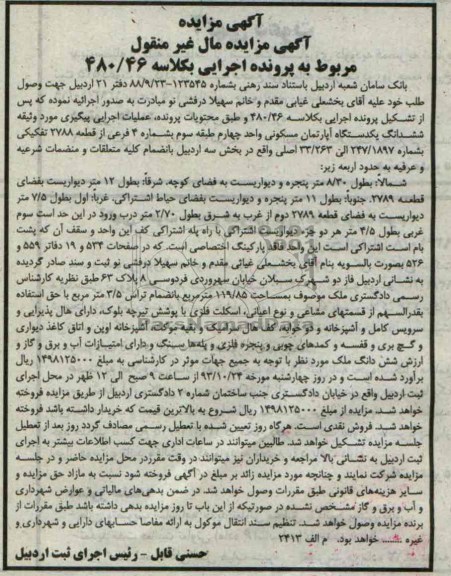 آگهی مزایده
آگهی مزایده مال غیر منقول
مربوط به پرونده اجرایی بکلاسه ۴۸۰/۴۶
بانک سامان شعبه اردبیل باستناد سند رهنی بشماره ۱۲۳۵۴۵-۸۸/۹/۲۳ دفتر ۲۱ اردبیل جهت وصول
طلب خود علیه آقای بخشعلی غیابی مقدم و خانم سهیلا درفشی نو مبادرت به صدور اجرائیه نموده که پس
از تشکیل پرونده اجرایی بکلاسه ۴۸۰/۴۶ و طبق محتویات پرونده، عملیات اجرایی پیگیری مورد وثیقه
ششدانگ یکدستگاه آپارتمان مسکونی واحد چهارم طبقه سوم بشماره ۴ فرعی از قطعه ۲۷۸۸ تفکیکی
بشماره ۲۴۷/۱۸۹۷ الی ۳۳/۲۶۳ اصلی واقع در بخش سه اردبیل بانضمام کلیه متعلقات و منضمات شرعیه
و عرفیه به حدود اربعه زیر:
شمالا: بطول ۸/۳۰ متر پنجره و دیواریست به فضای کوچه. شرقاً: بطول ۱۲ متر دیواریست بفضای
قطعه ۲۷۸۹. جنوباً: بطول ۱۱ متر پنجره و دیواریست بفضای حیاط اشتراکی. غرباً: اول بطول ۷/۵ متر
دیواریست به فضای قطعه ۲۷۸۹ دوم از غرب به شرق بطول ۲/۷۰ متر درب ورود در این حد است سوم
غربی بطول ۴/۵ متر هر دو جزء دیواریست اشتراکی با راه پله اشتراکی کف این واحد و سقف آن که پشت
بام است اشتراکی است این واحد فاقد پارکینگ اختصاصی است. که در صفحات ۵۳۳ و ۱۹ دفاتر ۵۵۹ و
۵۲۶ بصورت بالسویه بنام آقای بخشعلی غیائی مقدم و خانم سهیلا درفشی نو ثبت و سند صادر گردیده
به نشانی اردبیل فاز دو شهرک سبلان خیابان سهروردی فردوسی ۸ پلاک ۶۳ طبق نظریه کارشناس
رسمی دادگستری ملک موصوف بمساحت ۱۱۹/۸۵ مترمربع بانضمام تراس ۳/۵ متر مربع با حق استفاده
بقدرالسهم از قسمتهای مشاعی و نوع اعیانی، اسکلت فلزی با پوشش تیرچه بلوک، دارای هال پذیرایی و
سرویس کامل و آشپزخانه و دو خوابه، کف هال سرامیک و بقیه موکت، آشپزخانه اوپن و اتاق کاغذ دیواری
و گچ بری و قفسه و کمدهای چوبی و پنجره فلزی و پله‌ها سنگ و دارای امتیازات آب و برق و گاز و
ارزش شش دانگ ملک مورد نظر با توجه به جمیع جهات موثر در کارشناسی به مبلغ ۱۴۹۸۱۲۵۰۰۰ ریال
برآورد شده است و در روز چهارشنبه مورخه ۹۳/۱۰/۲۴ از ساعت ۹ صبح الی ۱۲ ظهر در محل اجرای
ثبت اردبیل واقع در خیابان دادگستری جنب ساختمان شماره ۲ دادگستری اردبیل از طریق مزایده فروخته
خواهد شد. مزایده از مبلغ ۱۴۹۸۱۲۵۰۰۰ ریال شروع به بالاترین قیمت که خریدار داشته باشد فروخته
خواهد شد. فروش نقدی است. هرگاه روز تعیین شده با تعطیل رسمی مصادف گردد روز بعد از تعطیل
جلسه مزایده تشکیل خواهد شد. طالبین میتوانند در ساعات اداری جهت کسب اطلاعات بیشتر به اجرای
ثبت اردبیل به نشانی بالا مراجعه و خریداران نیز میتوانند در وقت مقرر در محل مزایده حاضر و در جلسه
مزایده شرکت نمایند و چنانچه مورد مزایده زائد بر مبلغ در آگهی فروخته شود نسبت به مازاد حق مزایده و
سایر هزینه‌های قانونی طبق مقررات وصول خواهد شد. در ضمن بدهی‌های مالیاتی و عوارض شهرداری
و آب و برق و گاز مشخص نشده در صورتیکه از این باب تا روز مزایده بدهی داشته باشد طبق مقررات از
برنده مزایده وصول خواهد شد. تنظیم سند انتقال موکول به ارائه مفاصا حسابهای دارایی و شهرداری و
غیره خواهد بود. م الف ۲۴۱۳
حسنی قابل - رئیس اجرای ثبت اردبیل